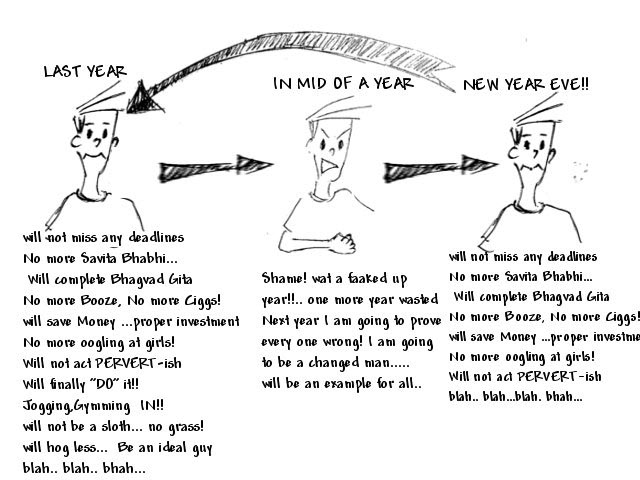 LAST YEAR
will not miss any deadlines
No more Savita Bhabhi...
Will complete Bhagvad Gita
No more Booze, No more Ciggs!
will save Money ...proper investment
No more oogling at girls!
Will not act PERVERT-ish
Will finally "DO" it!!
Jogging,Gymming IN!!
will not be a sloth... no grass!
will hog less... Be an ideal guy
blah.. blah.. bhah...
IN MID OF A YEAR
Shame! wat a faaked up
year!!.. one more year wasted
Next year I am going to prove
every one wrong! I am going
to be a changed man.....
will be an example for all..
NEW YEAR EVE!!
will not miss any deadlines
No more Savita Bhabhi...
Will complete Bhagvad Gita
No more Booze, No more Ciggs!
will save Money ...proper investme
No more oogling at girls!
Will not act PERVERT-ish
blah.. blah...blah. bhah...